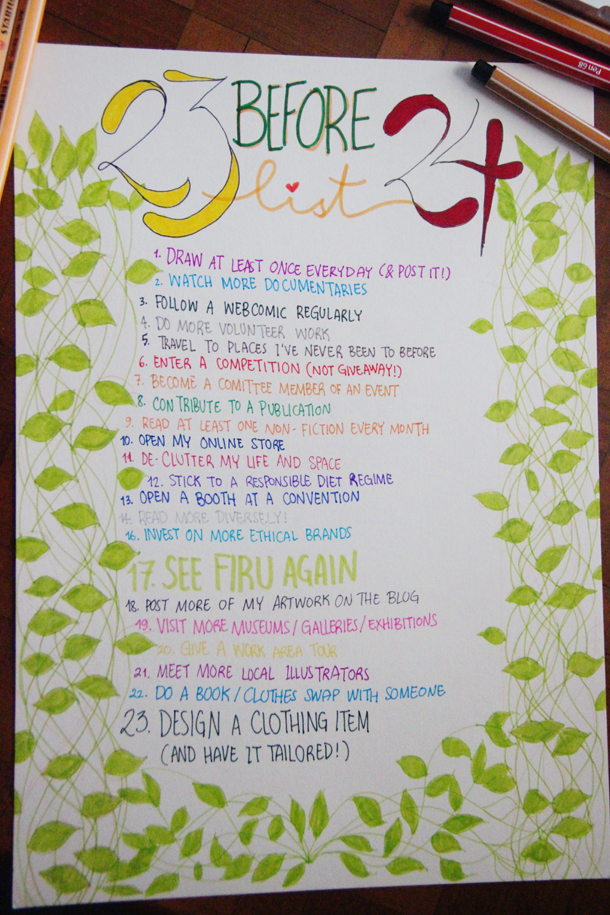 STABILO
Pen 68
23 BEFORE 24
list
1. DRAW AT LEAST ONCE EVERYDAY (& POST IT!)
2. WATCH MORE DOCUMENTARIES
3. FOLLOW A WEBCOMIC REGULARLY
4. DO MORE VOLUNTEER WORK
5. TRAVEL TO PLACES I'VE NEVER BEEN TO BEFORE
6. ENTER A COMPETITION (NOT GIVEAWAY!)
7. BECOME A COMITTEE MEMBER OF AN EVENT
8. CONTRIBUTE TO A PUBLICATION
9. READ AT LEAST ONE NON-FICTION EVERY MONTH
10. OPEN MY ONLINE STORE
11. DE-CLUTTER MY LIFE AND SPACE
12. STICK TO A RESPONSIBLE DIET REGIME
13. OPEN A BOOTH AT A CONVENTION
14. READ MORE DIVERSELY!
16. INVEST ON MORE ETHICAL BRANDS
17. SEE FIRU AGAIN
18. POST MORE OF MY ARTWORK ON THE BLOG
19. VISIT MORE MUSEUMS/GALLERIES/EXHIBITIONS
20. GIVE A WORK AREA TOUR
21. MEET MORE LOCAL ILLUSTRATORS
22. DO A BOOK/CLOTHES SWAP WITH SOMEONE
23. DESIGN A CLOTHING ITEM
(AND HAVE IT TAILORED!)